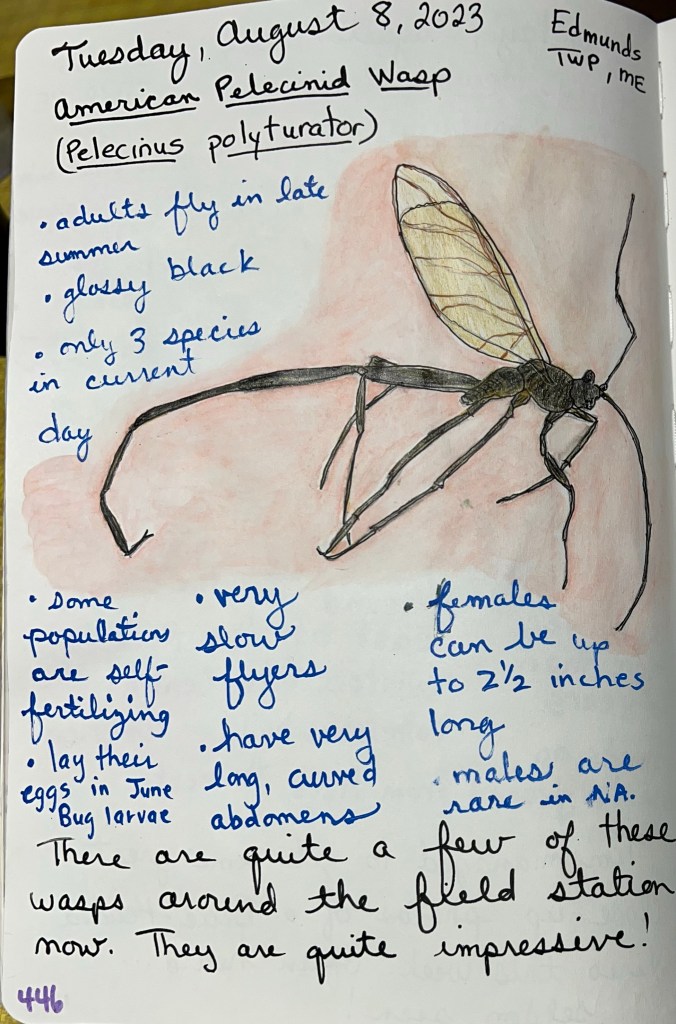 Tuesday, August 8, 2023
Edmunds
TWP, ME
American Pelecinid Wasp
(Pelecinus polyturator)
• adults fly in late
summer
• glossy black
• only 3 species
in current
day
• some
populations
are self-
fertilizing
• lay their
eggs in June
Bug larvae
• very
slow
flyers
• have very
long, curved
abdomens
• females
can be up
to 2 1/2 inches
long
• males are
rare in NA.
There are quite a few of these
wasps around the field station
now. They are quite impressive!
446